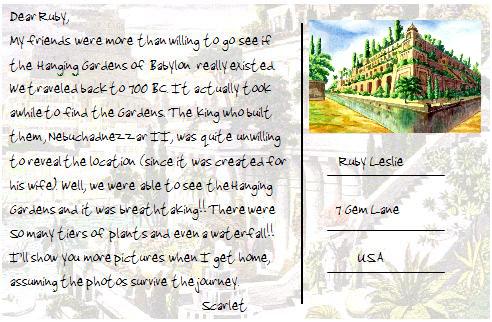 Dear Ruby,
My friends were more than willing to go see if
the Hanging Gardens of Babylon really existed.
We traveled back to 700 BC. It actually took
awhile to find the Gardens. The King who built
them, Nebuchadnezzar II, was quite unwilling
to reveal the location (since it was created for
his wife). Well, we were able to see the Hanging
Gardens and it was breathtaking!! There were
so many tiers of plants and even a waterfall!!
I'll show you more pictures when I get home,
assuming the photos survive the journey.
Scarlet
Ruby Leslie
7 Gem Lane
USA